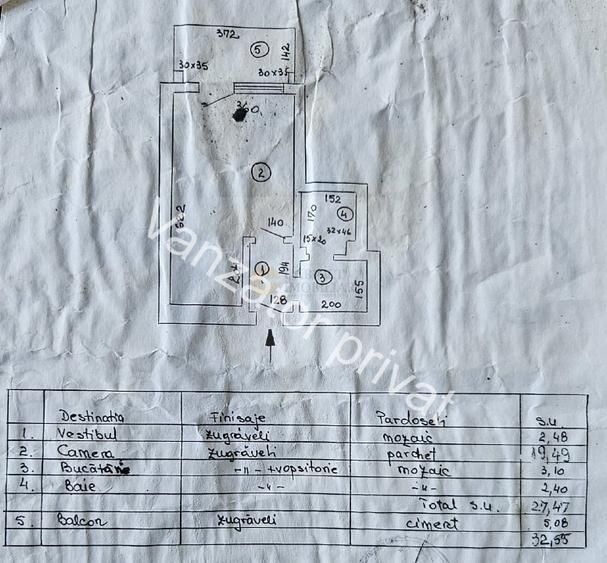 372
5
142
30x35
30x35
360
2
622
152
170
4
140
32x46
15x20
1
194
3
155
128
200
Vanzator privat
Destinatia Finisaje Pardoseli s.u.
1. Vestibul zugrăveli mozaic 2,48
2. Camera zugrăveli parchet 19,49
3. Bucătărie -"- + vopsitorie mozaic 3,10
4. Baie -"- -"- 2,40
Total s.u. 27,47
5. Balcon zugrăveli ciment 5,08
32,55